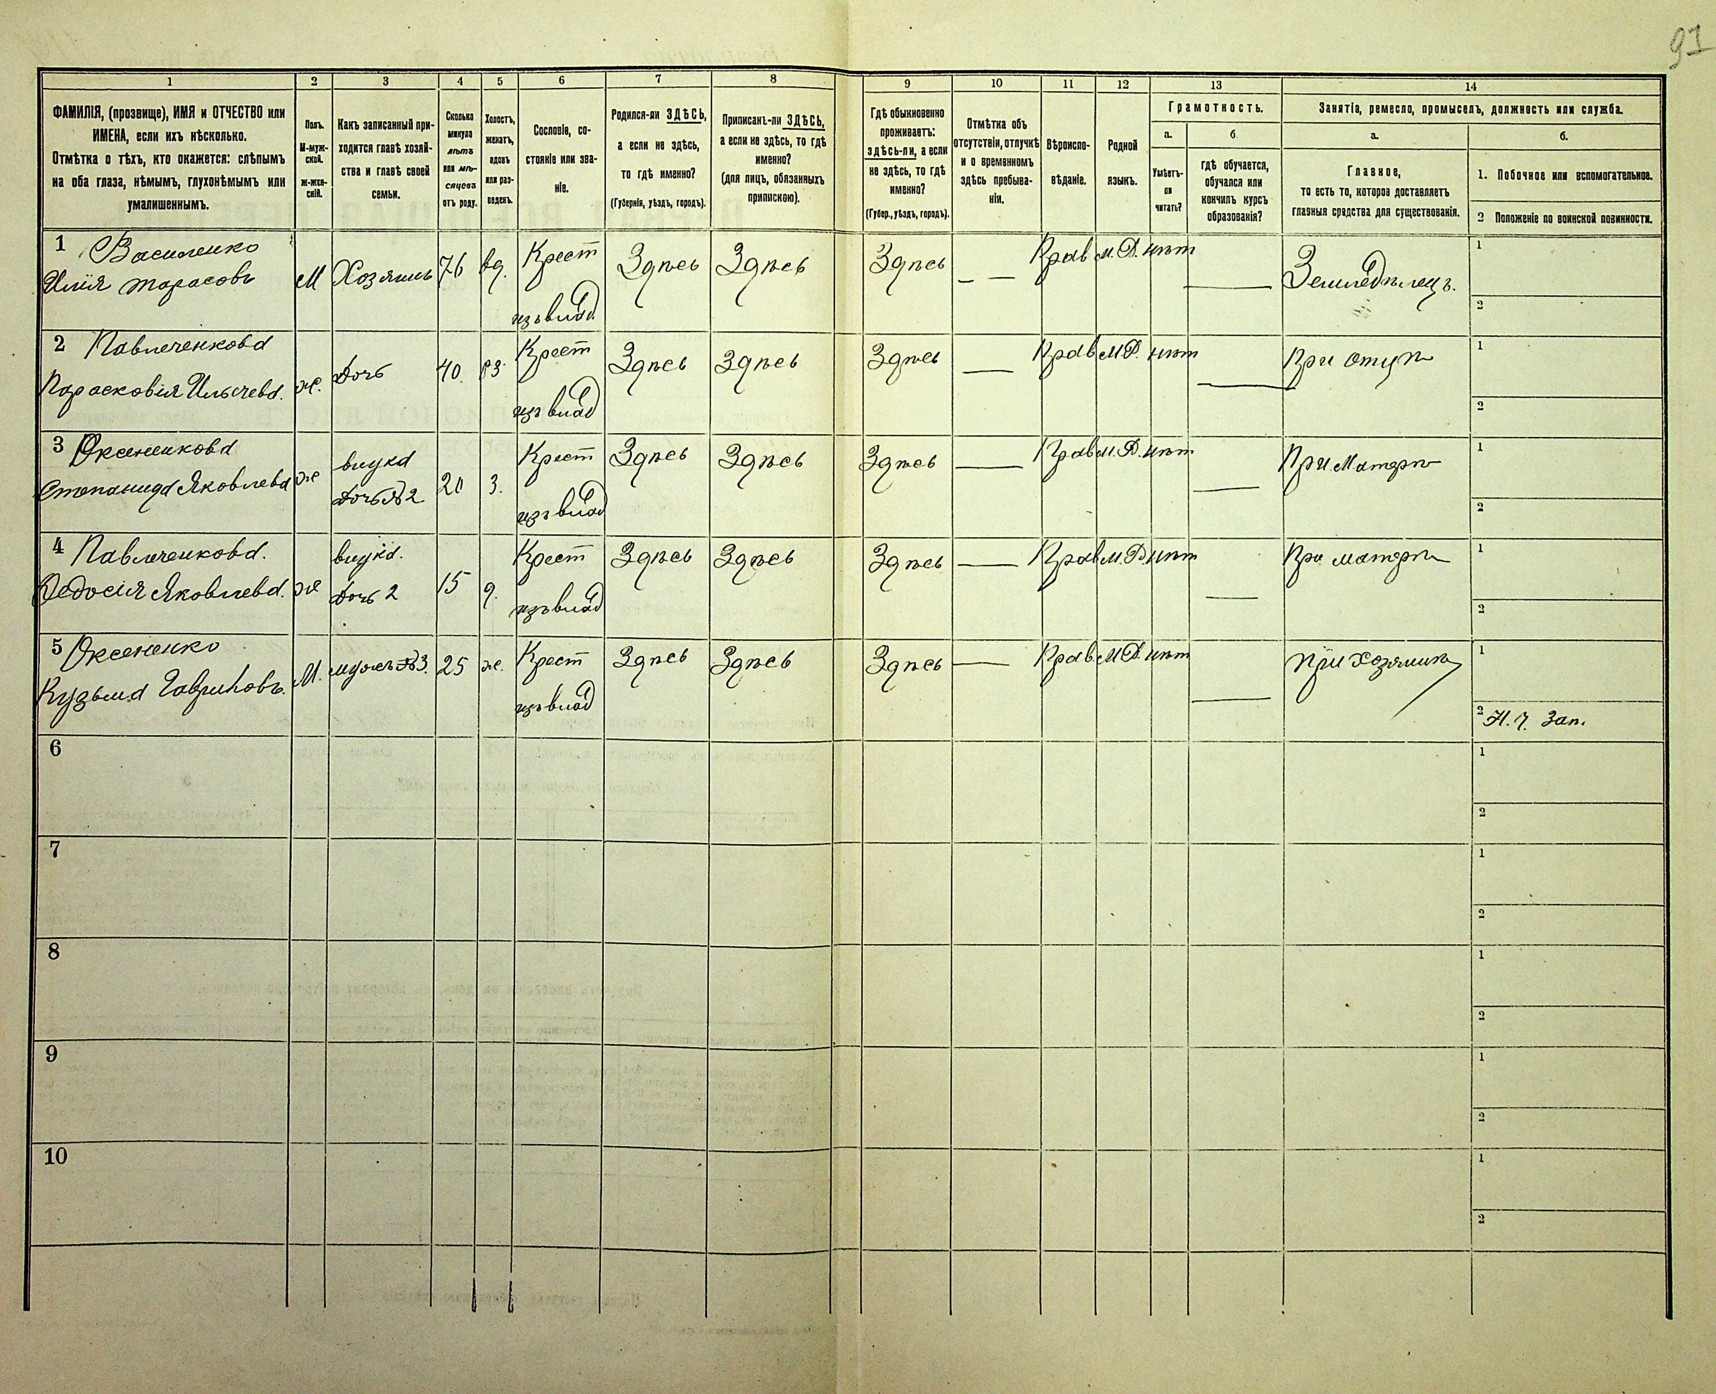 91
1 2 3 4 5 6 7 8 9 10 11 12 13 14
ФАМИЛІЯ, (прозвище), ИМЯ и ОТЧЕСТВО или
ИМЕНА, если ихъ нѣсколько.
Отмѣтка о тѣхъ, кто окажется: слѣпымъ
на оба глаза, нѣмымъ, глухонѣмымъ или
умалишеннымъ.
Полъ.
М-муж-
ской.
ж-жен-
скій.
Какъ записанный при-
ходится главѣ хозяй-
ства и главѣ своей
семьи.
Сколько
минуло
лѣтъ
или мѣ-
сяцевъ
отъ роду.
Холостъ,
женатъ,
вдовъ
или раз-
веденъ.
Сословіе, со-
стояніе или зва-
ніе.
Родился-ли ЗДѢСЬ,
а если не здѣсь,
то гдѣ именно?
(Губернія, уѣздъ, городъ).
Приписанъ-ли ЗДѢСЬ,
а если не здѣсь, то гдѣ
именно?
(для лицъ, обязанныхъ
припискою).
Гдѣ обыкновенно
проживаетъ:
здѣсь-ли, а если
не здѣсь, то гдѣ
именно?
(Губер., уѣздъ, городъ).
Отмѣтка объ
отсутствіи, отлучкѣ
и о временномъ
здѣсь пребыва-
ніи.
Вѣроиспо-
вѣданіе.
Родной
языкъ.
Грамотность.
а.
Умѣетъ-
ли
читать?
б.
гдѣ обучается,
обучался или
кончилъ курсъ
образованія?
Занятіе, ремесло, промыселъ, должность или служба.
а.
Главное,
то есть то, которое доставляетъ
главныя средства для существованія.
б.
1. Побочное или вспомогательное.
2 Положеніе по воинской повинности.
1 Василенко
Илія Тарасовъ М Хозяинъ 76 вд. Крест изъ влад. Здѣсь Здѣсь Здѣсь — Прав М.Р. нѣт — Земледѣлецъ. 1 2
2 Павлеченкова
Парасковія Ильичева. ж. дочь 40 Крест изъ влад Здѣсь Здѣсь Здѣсь — Прав М.Р. нѣт — При отцѣ 1 2
3 Оксененкова
Степанида Яковлева ж внука дочь № 2 20 З. Крест изъ влад Здѣсь Здѣсь Здѣсь — Прав М.Р. нѣт — При Матерѣ 1 2
4 Павлеченкова.
Федосія Яковлева. ж внука. дочь 2 15 д. Крест изъ влад Здѣсь Здѣсь Здѣсь — Прав М.Р. нѣт — При матерѣ 1 2
5 Оксененко
Кузьма Гавриловъ. М. мужъ № 3. 25 ж. Крест изъ влад Здѣсь Здѣсь Здѣсь — Прав М.Р. нѣт — При хозяинѣ 1 2 Н. Ч. Зап.
6 1 2
7 1 2
8 1 2
9 1 2
10 1 2